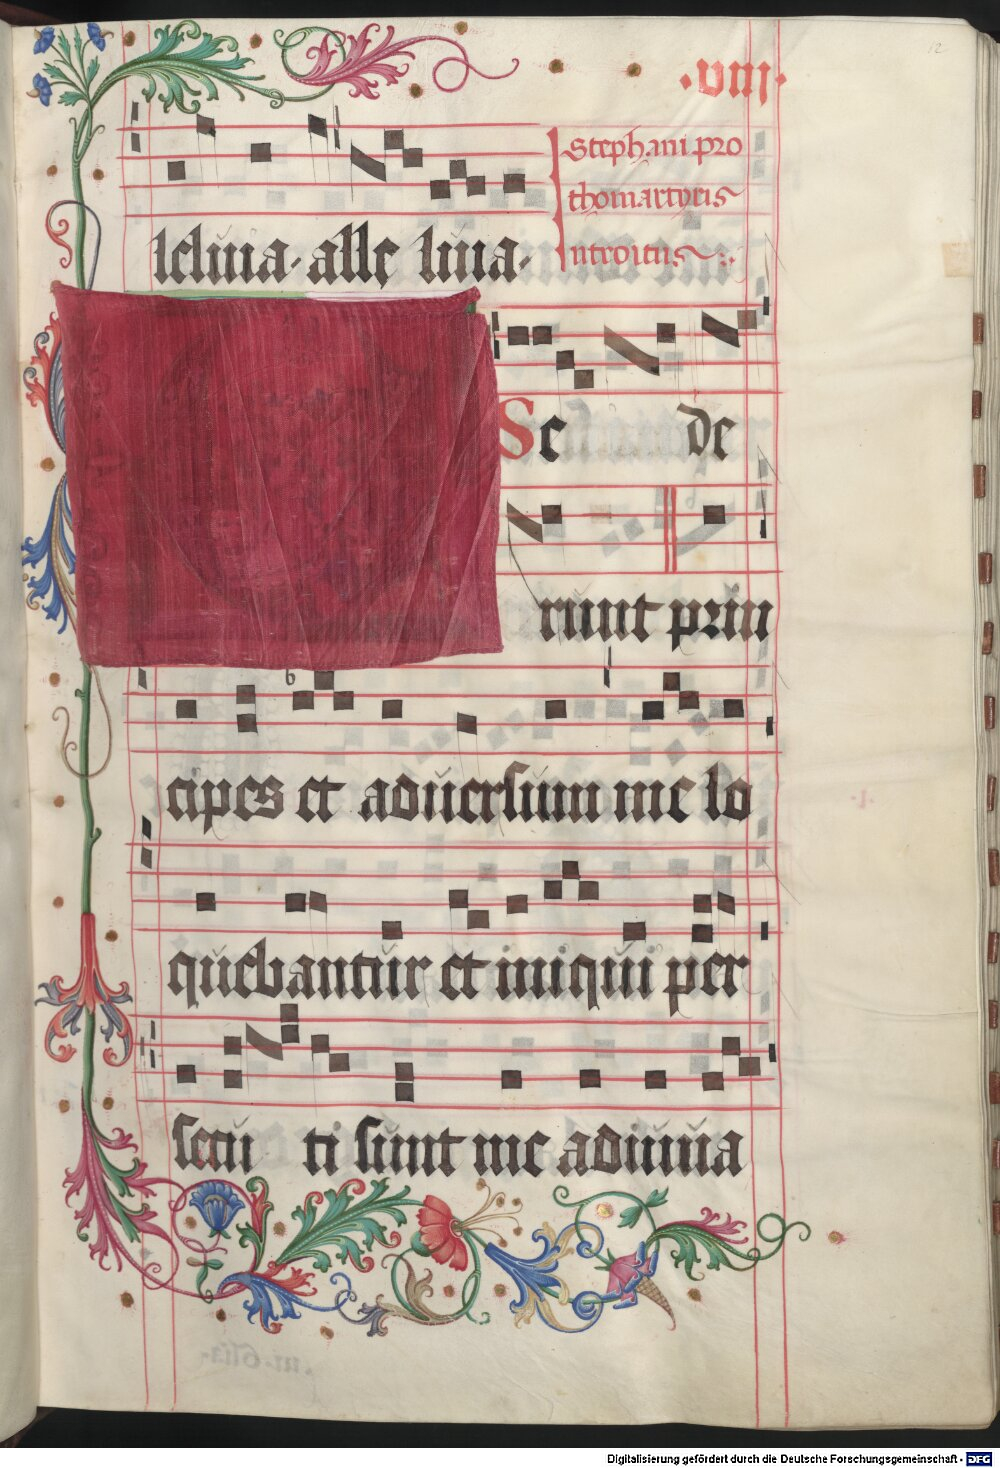 12
·viij·
Stephani pro
thomartyris
introitus
leluia· alle luia·
Se de
runt prin
cipes et aduersum me lo
quebantur et iniqui per
secu ti sunt me adiuua
Digitalisierung gefördert durch die Deutsche Forschungsgemeinschaft - DFG